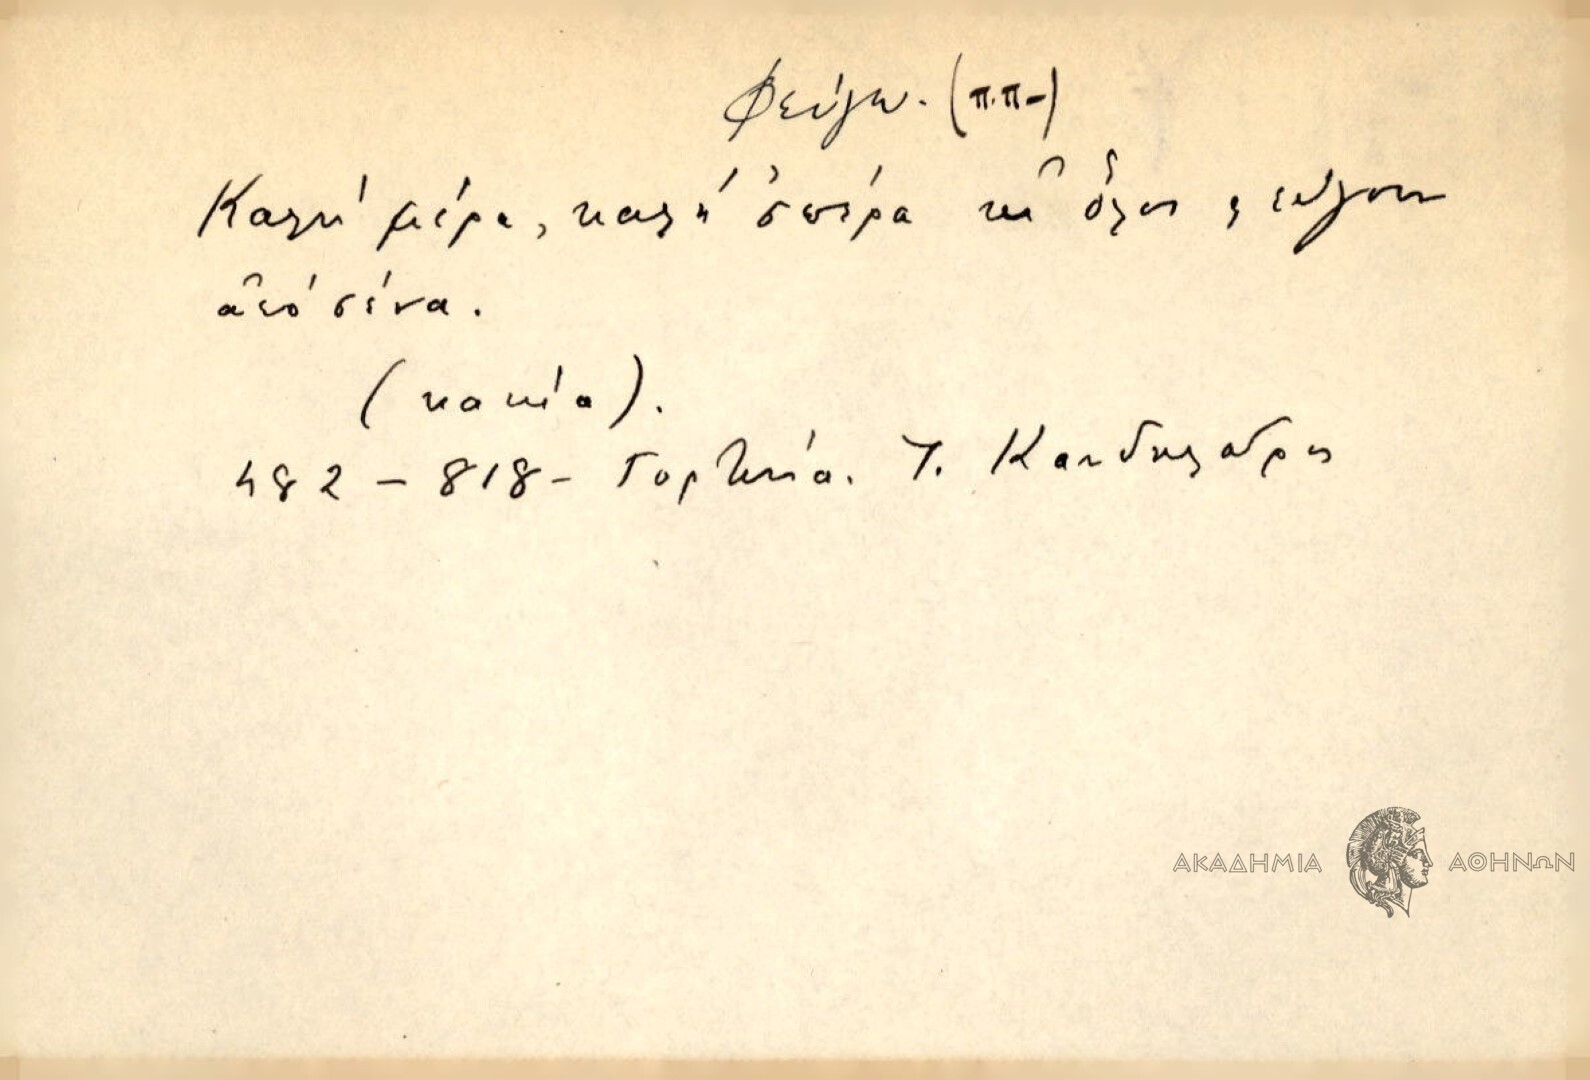 Φεύγω. (π.π-)
Καλή μέρα, καλή ἑσπέρα κι ὅλοι φεύγουν
ἀπό σένα.
(κακία).
482 - 818 - Γορτυνία. Τ. Κανδηλώρος
ΑΚΑΔΗΜΙΑ ΑΘΗΝΩΝ